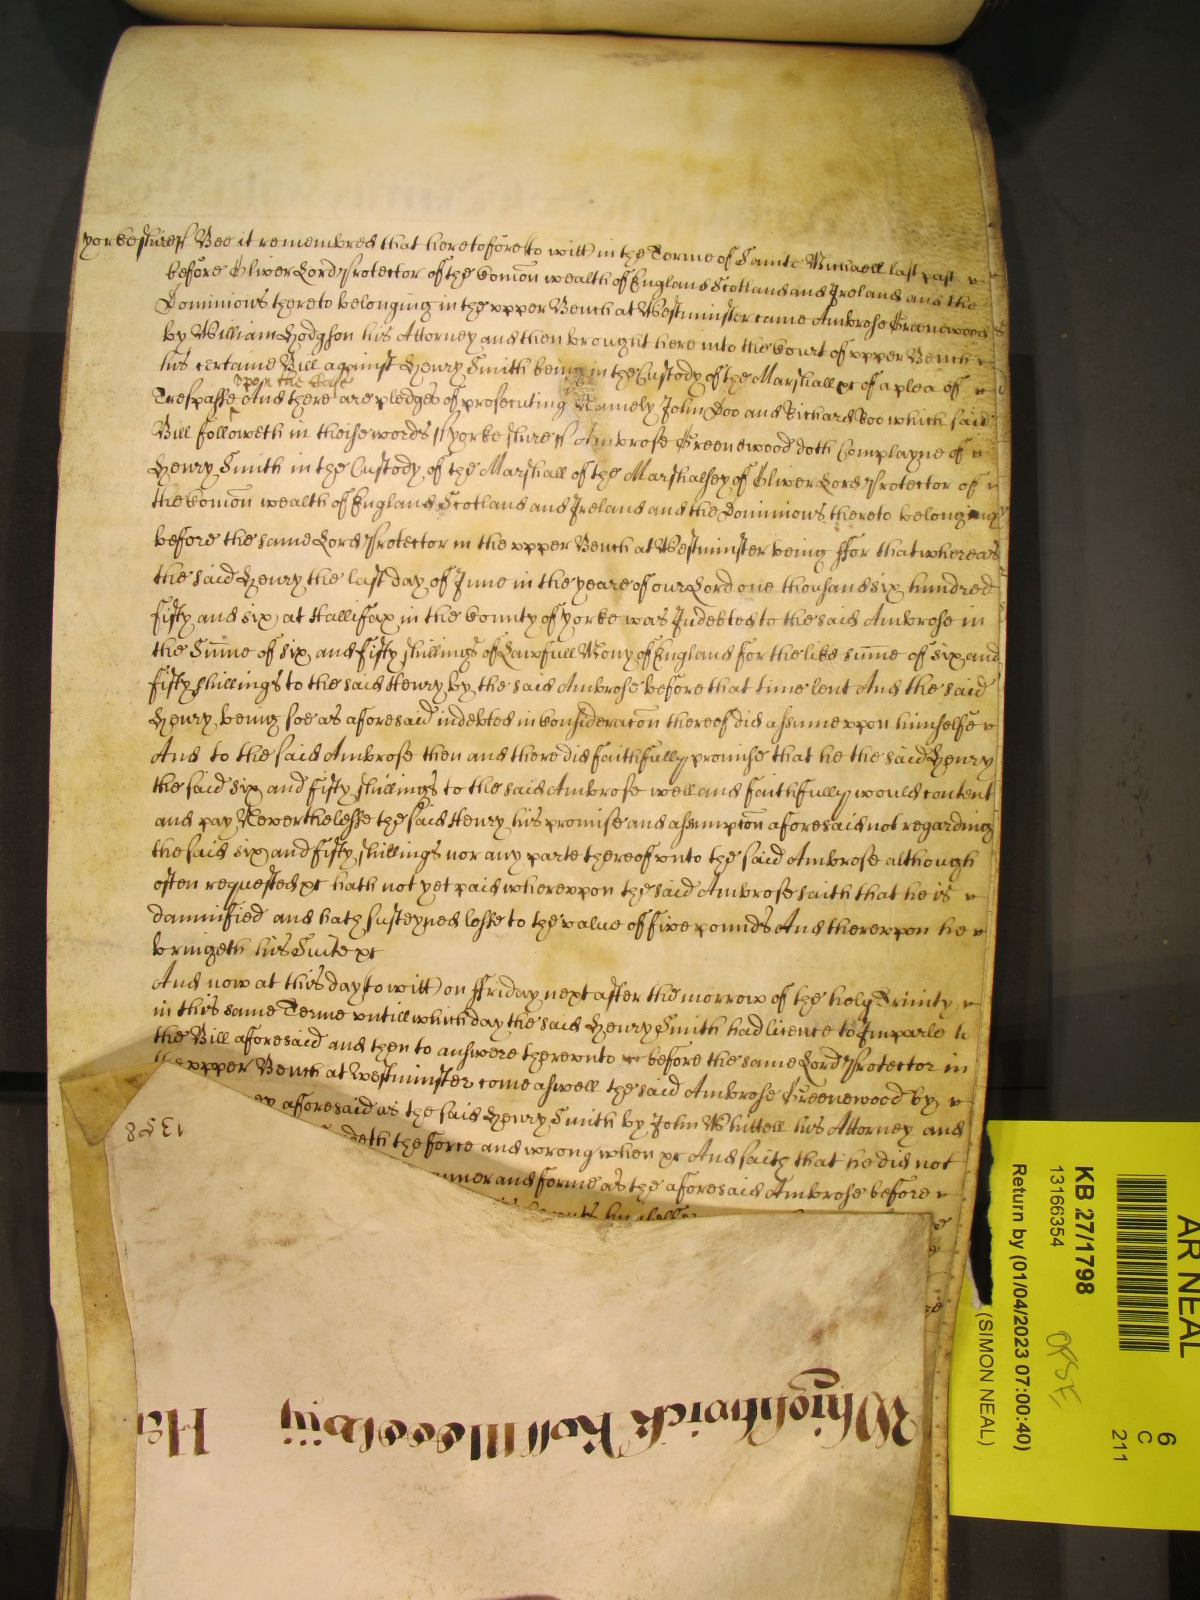 Yorkeshire ss Bee it remembred that heretofore (to witt) in the Terme of Sainte Michaell last past
before Oliver Lord Protector of the Com̄on wealth of England Scotland and Ireland and the
Dominions thereto belonging in the vpper Bench at Westminster came Ambrose Greenewood
by William Hodgson his Attorney and then brought here into the Court of vpper Bench
his certaine Bill against Henry Smith being in the Custody of the Marshall &c of a plea of
vpon the Case
Trespasse And there are pledges of prosecuting Namely John Doo and Richard Roo which said
Bill followeth in theise words ss Yorkeshire ss Ambrose Greenewood doth Complayne of
Henry Smith in the Custody of the Marshall of the Marshalsey of Oliver Lord Protector of
the Com̄on wealth of England Scotland and Ireland and the Dominions thereto belonging
before the same Lord Protector in the vpper Bench at Westminster being ffor that whereas
the said Henry the last day of June in the yeare of our Lord one thousand six hundred
fifty and six at Hallifax in the County of Yorke was Indebted to the said Ambrose in
the Sum̄e of six and fifty shillings of Lawfull Mony of England for the like sum̄e of six and
fifty shillings to the said Henry by the said Ambrose before that time lent And the said
Henry being soe as aforesaid indebted in Consideracon thereof did assume vpon himselfe
And to the said Ambrose then and there did faithfully promise that he the said Henry
the said six and fifty shillings to the said Ambrose well and faithfully would content
and pay Neverthelesse the said Henry his promise and assumpcon aforesaid not regarding
the said six and fifty shillings nor any parte thereof vnto the said Ambrose although
often requested &c hath not yet paid wherevpon the said Ambrose saith that he is
damnified and hath susteyned losse to the value of five pounds And therevpon he
bringeth his Suite &c
And now at this day (to witt) on ffriday next after the morrow of the holy Trinity
in this same Terme vntill which day the said Henry Smith had licence to Imparle to
the Bill aforesaid and then to answere therevnto before the same Lord Protector in
the vpper Bench at Westminster come aswell the said Ambrose Greenewood by
ey aforesaid as the said Henry Smith by John Whittell his Attorney and
deth the force and wrong when &c And saith that he did not
nner and forme as the aforesaid Ambrose before
1358
Whightwick Roll
AR NEAL
KB 27/1798
13166354
Return by (01/04/2023 07:00:40)
(SIMON NEAL)
6
C
211